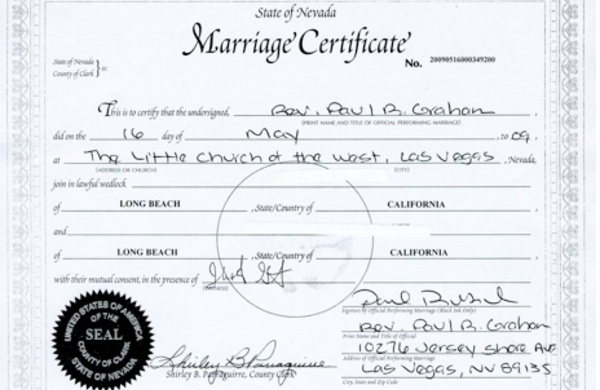 State of Nevada
Marriage Certificate
State of Nevada
County of Clark } ss
No. 20090516000349200
This is to certify that the undersigned, Rev. Paul R. Graham
(PRINT NAME AND TITLE OF OFFICIAL PERFORMING MARRIAGE)
did on the 16 day of May , 20 09,
at The Little Church of the West, Las Vegas , Nevada,
(ADDRESS OR CHURCH) (CITY)
join in lawful wedlock
of LONG BEACH , State/Country of CALIFORNIA ,
and
of LONG BEACH , State/Country of CALIFORNIA
with their mutual consent, in the presence of
(WITNESS)
Signature of Official Performing Marriage (Black Ink Only)
Rev. Paul R. Graham
Print Name and Title of Official
10276 Jersey Shore Ave
Address of Official Performing Marriage
Las Vegas, NV 89135
City, State and Zip Code
UNITED STATES OF AMERICA
OF THE
SEAL
COUNTY OF CLARK
STATE OF NEVADA
Shirley B. Parraguirre, County Clerk